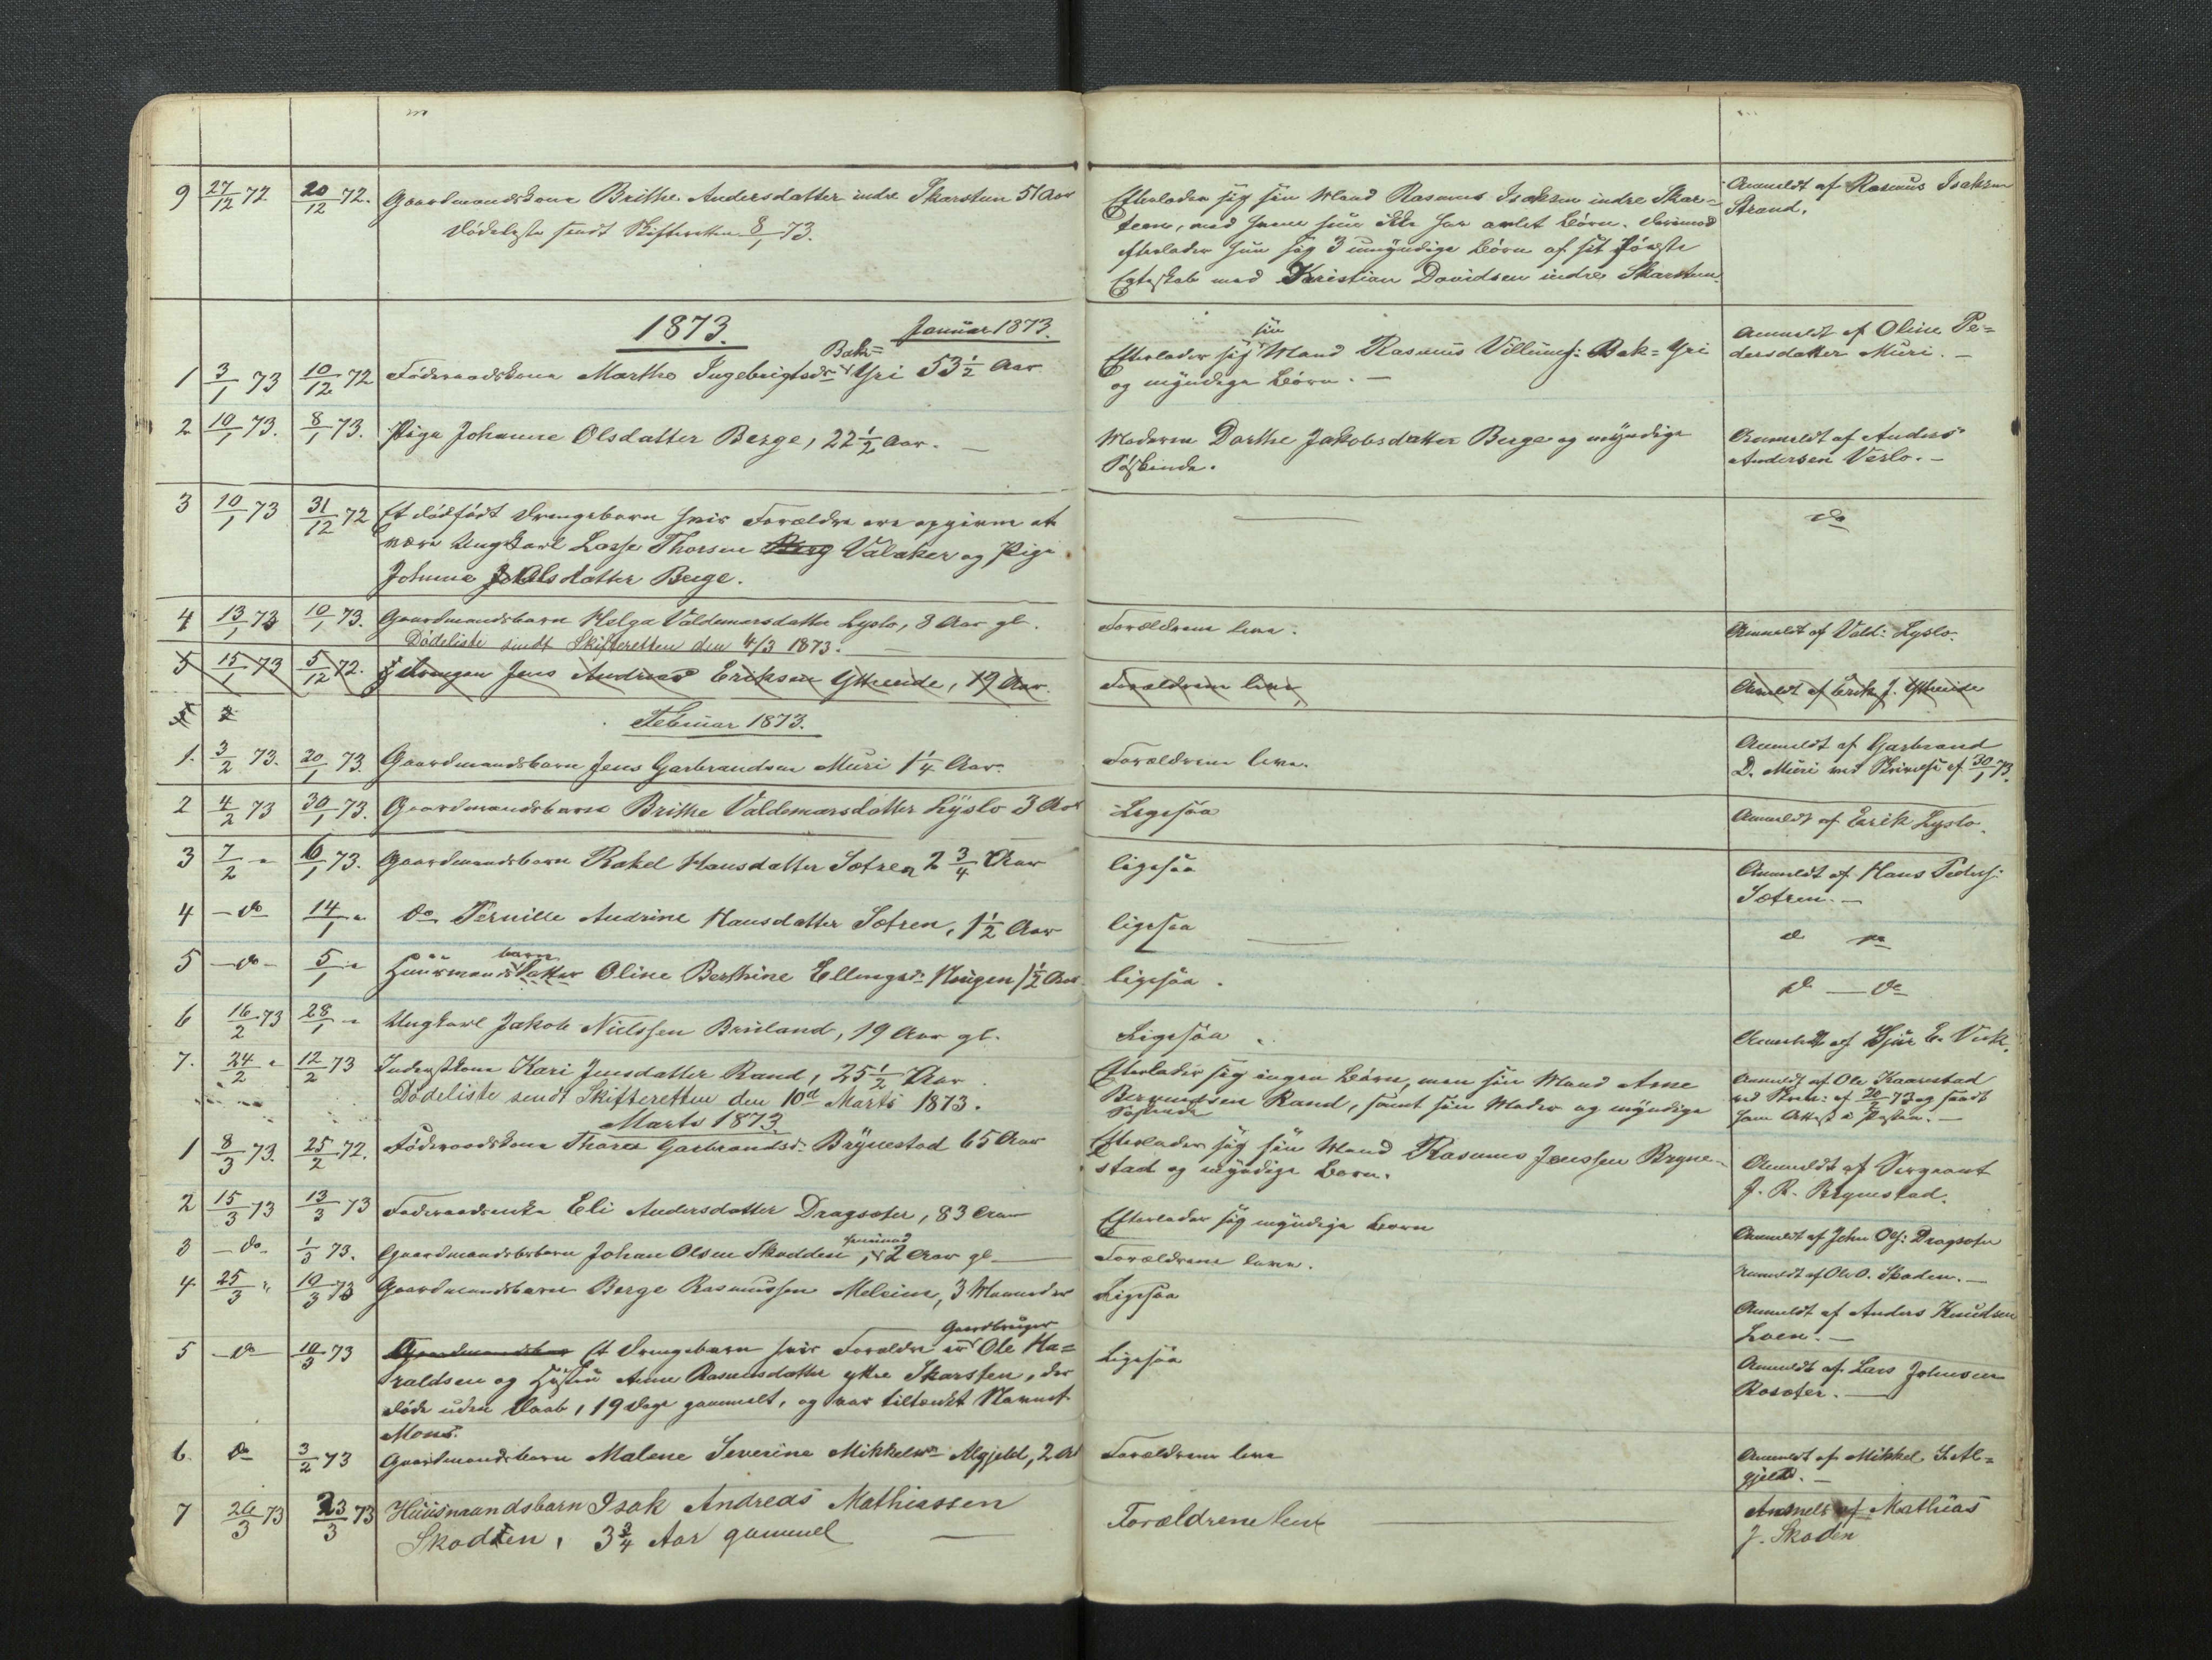 9 27/12 72 20/12 72. Gaardmandskone Brithe Andersdatter indre Skarsten 51 Aar
Dødsliste sendt Skifteretten 8/1 73.
Efterlader sig sin Mand Rasmus Isaksen indre Skar-
steen, med hvem hun ikke har avlet Børn. Derimod
efterlader hun sig 3 umyndige Børn af sit første
Egteskab med Kristian Davidsen indre Skarsten.
Anmeldt af Rasmus Isaksen
Strand.
1873. Januar 1873.
1 3/1 73 10/12 72 Føderaadskone Marthe Ingebrigtsdr Bak= Yri 53 1/2 Aar
Efterlader sig sin Mand Rasmus Villums: Bak=Yri
og myndige Børn. —
Anmeldt af Oline Pe=
dersdatter Muri. —
2 10/1 73. 8/1 73. Pige Johanne Olsdatter Berge, 22 1/2 Aar. —
Moderen Dorthe Jakobsdatter Berge og myndige
Søskende.
Anmeldt af Anders
Andersen Verlo. —
3 10/1 73 31/12 72 Et dødfødt Drengebarn hvis Forældre ere opgivne at
være Ungkarl Lasse Thorsen Berg Valaker og Pige
Johanne Olsdatter Berge.
—
do
4 13/1 73 10/1 73. Gaardmandsbarn Helga Valdemarsdatter Lyslo, 8 Aar gl.
Dødeliste sendt Skifteretten den 4/3 1873. —
Forældrene leve.
Anmeldt af Vald: Lyslo.
5 15/1 73 5/12 72. Drengen Jens Andreas Eriksen Ytreeide, 19 Aar.
Forældrene leve,
Anmeldt af Erik J. Ytreeide
Februar 1873.
1. 3/2 73. 20/1 73. Gaardmandsbarn Jens Garbrandsen Muri 1 1/4 Aar.
Forældrene leve.
Anmeldt af Garbrand
D. Muri ved Skrivelse af 30/1 73.
2 4/2 73 30/1 73. Gaardmandsbarn Brithe Valdemarsdatter Lyslo 3 Aar
Ligesaa
Anmeldt af Erik Lyslo.
3 7/2 " 6/1 73. Gaardmandsbarn Rakel Hansdatter Sætren 2 3/4 Aar
ligesaa
Anmeldt af Hans Peders:
Sætren. —
4 — do 14/1 " do Pernille Andrine Hansdatter Sætren, 1 1/2 Aar
ligesaa —
5 — do — 5/1 " Huusmandsbarn Oline Berthine Ellingsd: 1 1/2 Aar.
ligesaa.
do — do
6 16/2 73 28/1 " Ungkarl Jakob Nielssen Bruland, 19 Aar gl.
Ligesaa
Anmeldt af E. Vik.
7. 24/2 " 12/2 73 Inderstkone Kari Jensdatter Rand, 25 1/2 Aar.
Dødeliste sendt Skifteretten den 10d Marts 1873.
Efterlader sig ingen Børn, men sin Mand Arne
Rand, samt sin Moder og myndige
Søskende
Anmeldt af Ole Kaarestad
Marts 1873.
1 8/3 73. 25/2 72. Føderaadskone Garbrandsd: Brynestad 65 Aar
Efterlader sig sin Mand Rasmus Jenssen Bryne-
stad og myndige Børn.
Anmeldt af Sergeant
J. R. Brynestad.
2 15/3 73 13/3 73 Føderaadsenke Eli Andersdatter Dragsæter, 83 Aar
Efterlader sig myndige Børn
Anmeldt af John Ols: Dragsæter
3 — do. 1/3 73. Gaardmandsbarn Johan Olsen Skodden, 2 Aar gl —
Forældrene leve.
Anmeldt af Ole O. Skoden. —
4. 25/3 " 10/3 73 Gaardmandsbarn Berge Rasmussen Melheim, 3 Maaneder
Ligesaa
Anmeldt af Anders Knudsen
Loen. —
5 — do — 10/3 73 Gaardmandsbar Et Drengebarn hvis Forældre er Gaardbruger Ole Ha=
raldsen og Hustru Anne Rasmusdatter ytre Skarsten, der
døde uden Daab, 19 Dage gammelt, og var tiltænkt Navnet
Mons.
Ligesaa
Anmeldt af Lars Johnsen
Rosæter. —
6. do 3/2 73 Gaardmandsbarn Malene Severine Mikkelsdr Algjeld, 2 Aar
Forældrene leve
Anmeldt af Mikkel J. Al=
gjeld. —
7 26/3 73 23/3 73 Huusmandsbarn Isak Andreas Mathiassen
Skodden, 3 3/4 Aar gammel —
Forældrene leve —
Anmeldt af Mathias
J. Skoden